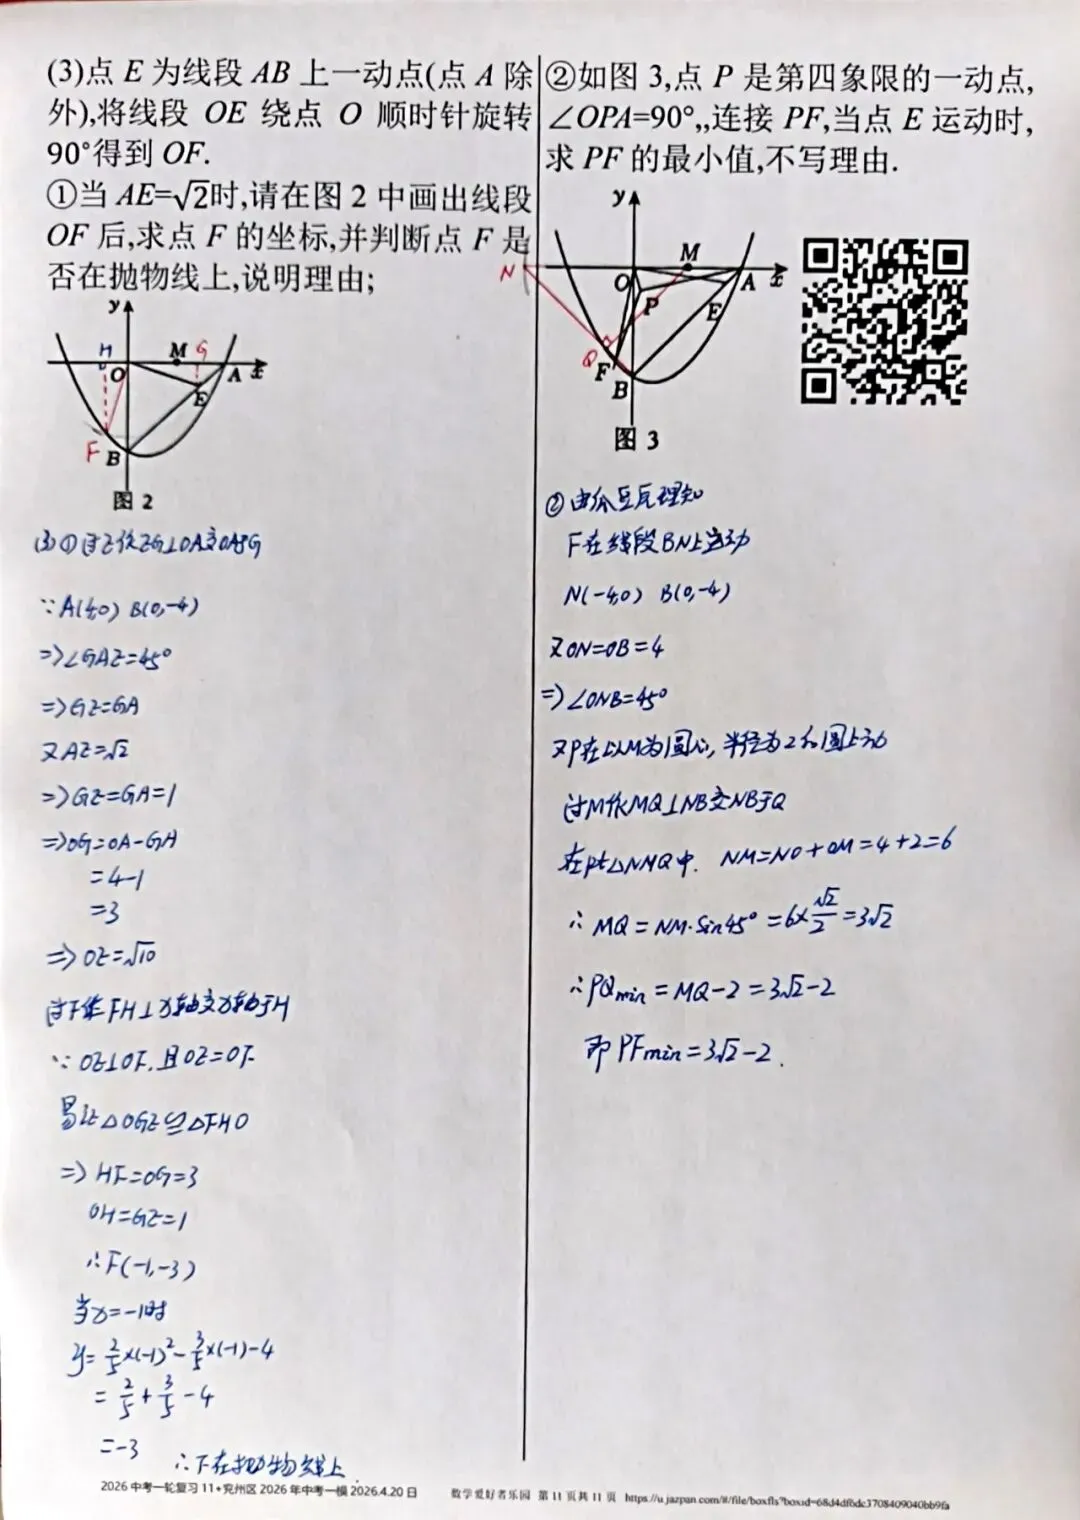 (3)点 E 为线段 AB 上一动点(点 A 除
外),将线段 OE 绕点 O 顺时针旋转
90°得到 OF.
①当 AE=√2时,请在图 2 中画出线段
OF 后,求点 F 的坐标,并判断点 F 是
否在抛物线上,说明理由;
y
H
M
G
O
A
x
E
F
B
图 2
(3)①过E作EG⊥OA交OA于G
∵A(4,0) B(0,-4)
=>∠GAE=45°
=>GE=GA
又AE=√2
=>GE=GA=1
=>OG=OA-GA
=4-1
=3
=>OE=√10
过F作FH⊥x轴交x轴于H
∵OE⊥OF.且OE=OF.
易证△OGE≌△FHO
=>HF=OG=3
OH=GE=1
∴F(-1,-3)
当x=-1时
y=2/5×(-1)²-3/5×(-1)-4
=2/5+3/5-4
=-3
∴F在抛物线上
②如图 3,点 P 是第四象限的一动点,
∠OPA=90°,,连接 PF,当点 E 运动时,
求 PF 的最小值,不写理由.
y
N
M
O
A
x
P
E
Q
F
B
图 3
②由瓜豆原理知
F在线段BN上运动
N(-4,0) B(0,-4)
又ON=OB=4
=>∠ONB=45°
又P在以M为圆心,半径为2的圆上动
过M作MQ⊥NB交NB于Q
在Rt△NMQ中. NM=NO+OM=4+2=6
∴MQ=NM·Sin45°=6×√2/2=3√2
∴PQmin=MQ-2=3√2-2
即PFmin=3√2-2.
2026 中考一轮复习 11+兖州区 2026 年中考一模 2026.4.20 日 数学爱好者乐园 第 11 页共 11 页 https://u.jazpan.com/#/file/boxfls?boxid=68d4df6dc3708409040bb9fa